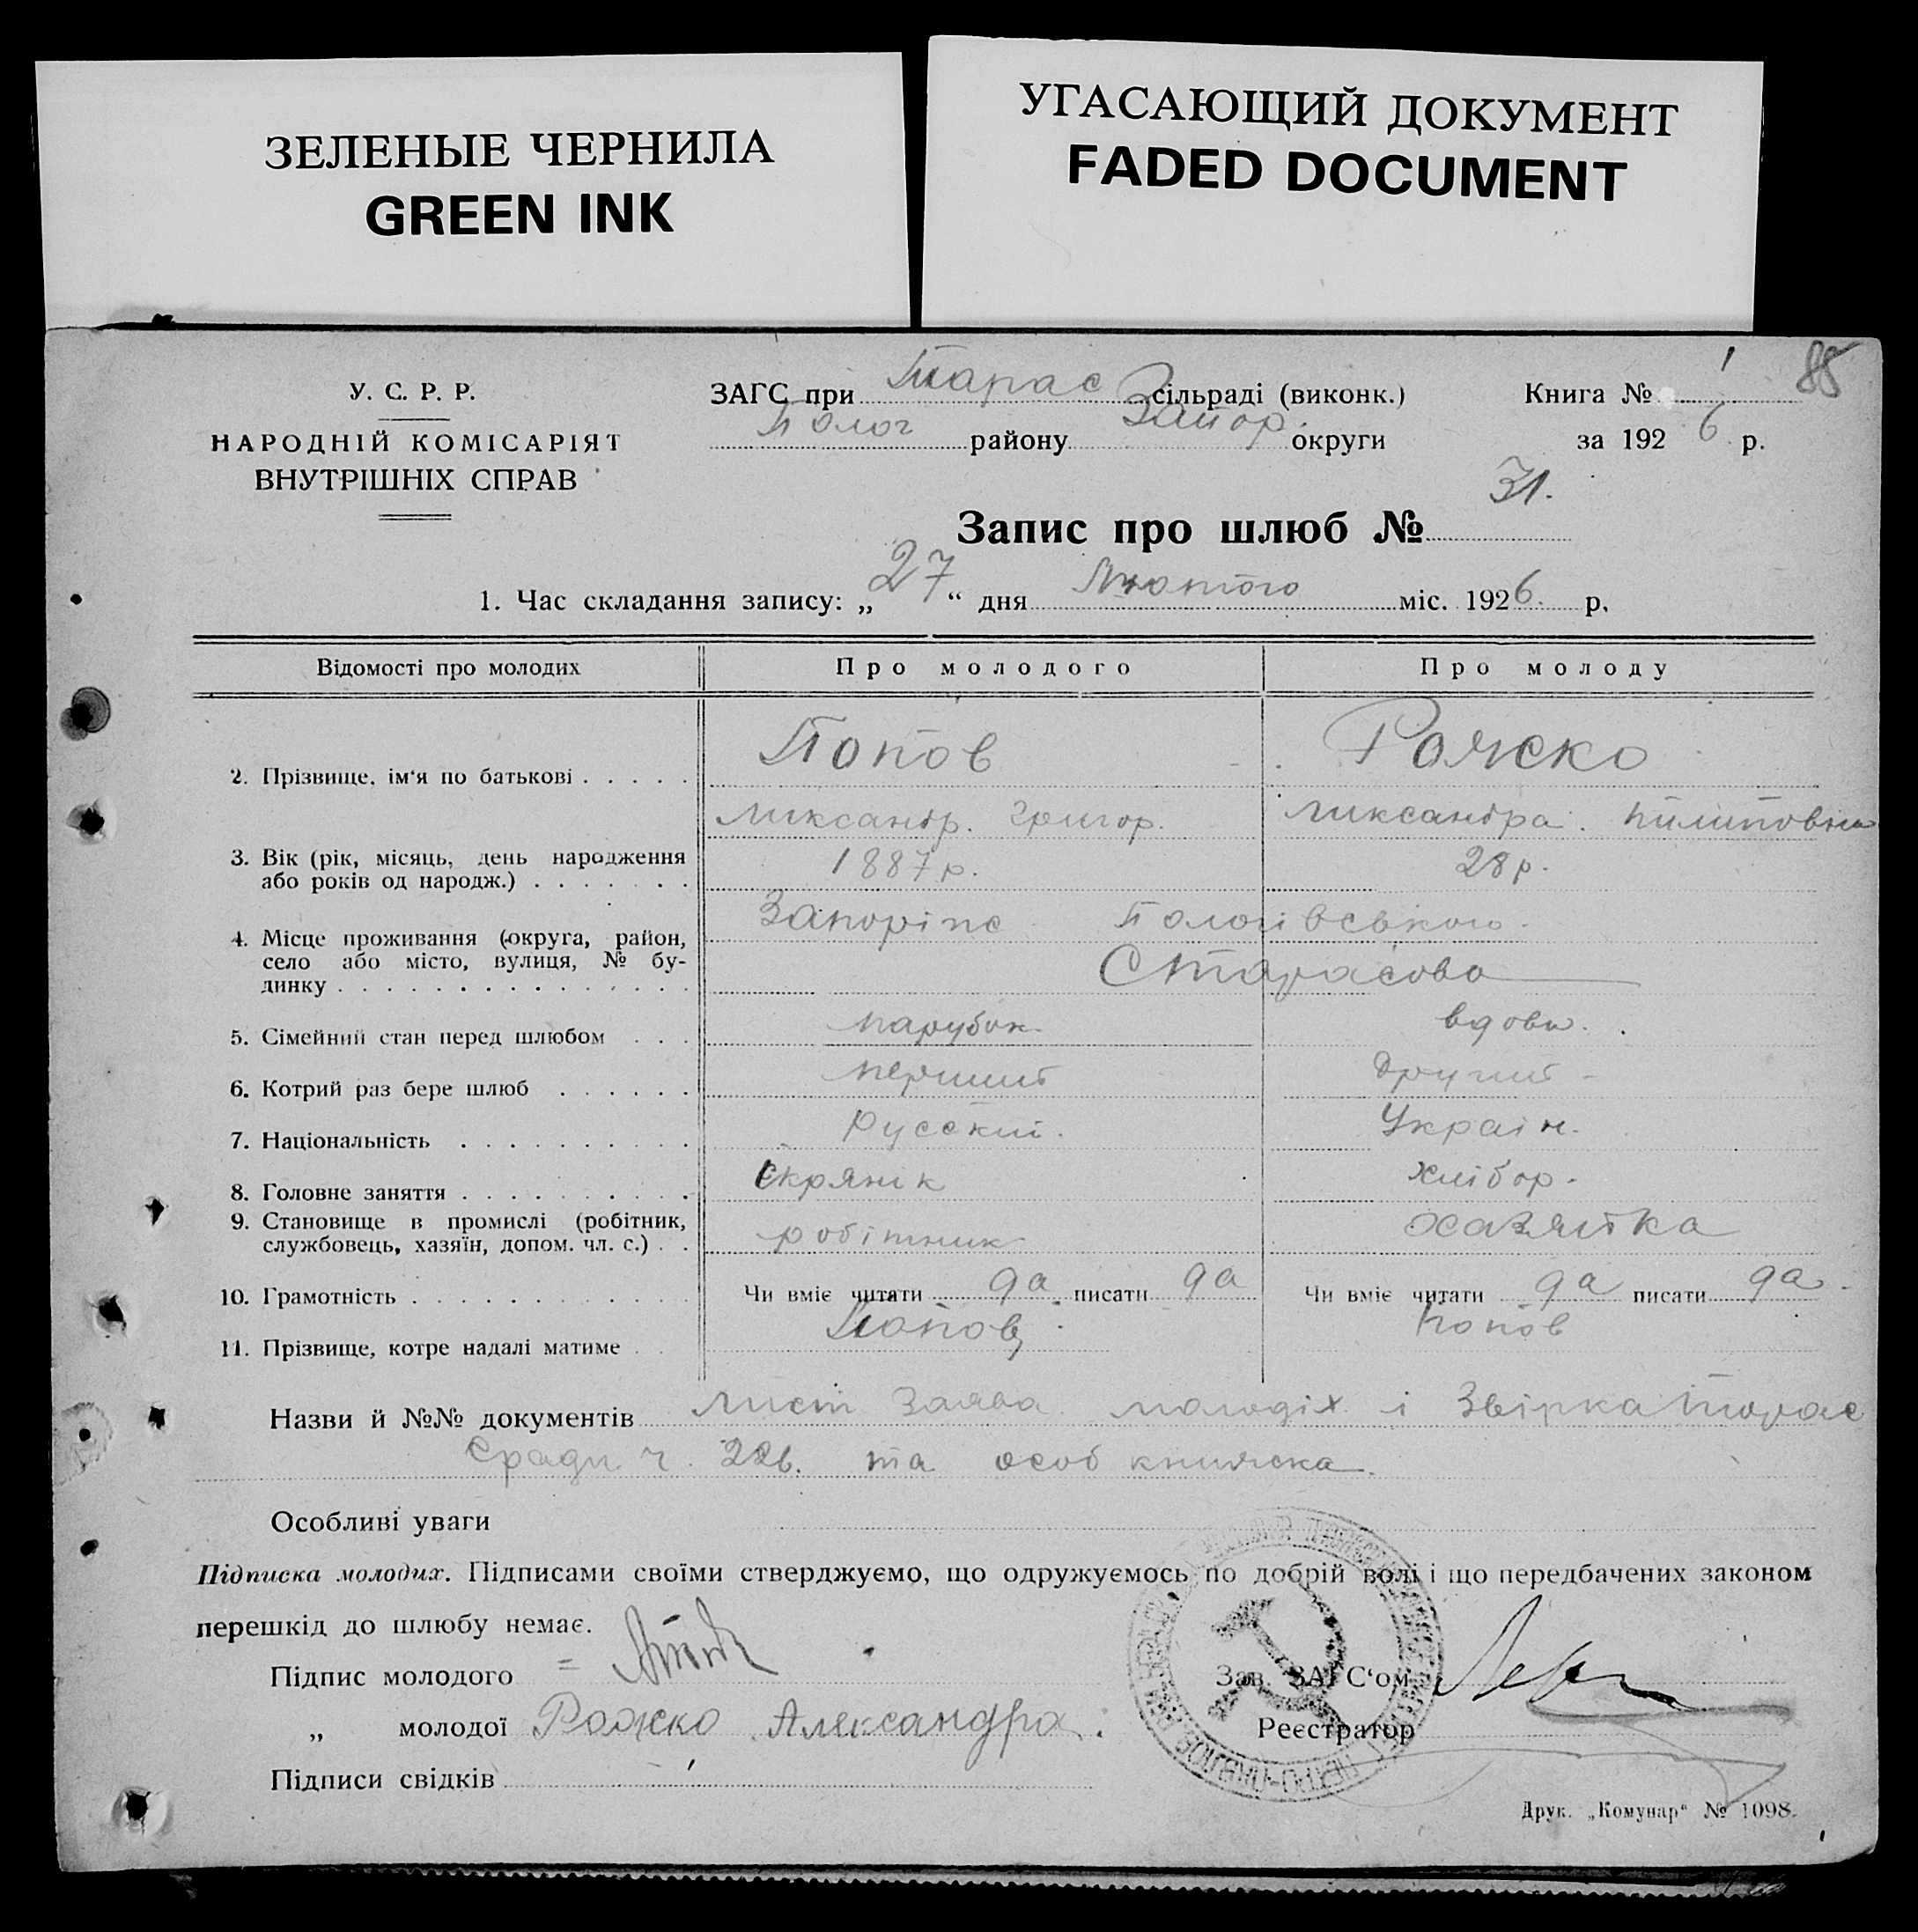 ЗЕЛЕНЫЕ ЧЕРНИЛА
GREEN INK
УГАСАЮЩИЙ ДОКУМЕНТ
FADED DOCUMENT
У. С. Р. Р.
НАРОДНІЙ КОМІСАРІЯТ
ВНУТРІШНІХ СПРАВ
ЗАГС при Тарас сільраді (виконк.)
Полог району Запор. округи
Книга № 1
88
за 1926 р.
Запис про шлюб № 31.
1. Час складання запису: „27“ дня Лютого міс. 1926. р.
Відомості про молодих Про молодого Про молоду
2. Прізвище, ім‘я по батькові Попов Рожко
Ликсандр. Григор. Ликсандра. Пилиповна
3. Вік (рік, місяць, день народження
або років од народж.) 1887 р. 28 р.
4. Місце проживання (округа, район,
село або місто, вулиця, № бу-
динку Пологівського
Старасово
5. Сімейний стан перед шлюбом парубок вдова.
6. Котрий раз бере шлюб перший Другий
7. Національність Русский. Україн.
8. Головне заняття хлібор.
9. Становище в промислі (робітник,
службовець, хазяїн, допом. чл. с.) робітник хазяйка
10. Грамотність Чи вміє читати да писати да Чи вміє читати да писати да
11. Прізвище, котре надалі матиме Попов Попов
Назви й №№ документів Лист Заява молодіх і Звірка Тарас
Сради ч. та особ книжска.
Особливі уваги
Підписка молодих. Підписами своїми стверджуємо, що одружуємось по добрій волі і що передбачених законом
перешкід до шлюбу немає.
Підпис молодого
„ молодої Рожко Александра.
Підписи свідків
Зав. ЗАГС‘ом
Реєстратор
Друк. „Комунар“ № 1098.